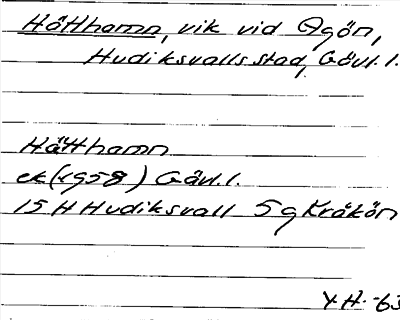 Hätthamn, vik vid Agön,
Hudiksvalls stad, Gävl. l.
Hätthamn
ek (1958) Gävl. l.
15 H Hudiksvall 5 g Kråkön
Y H. -63